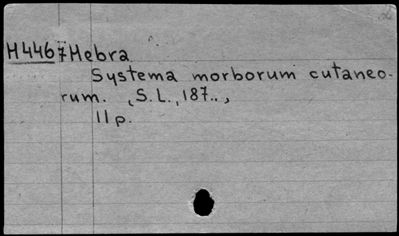 H4467Hebra
Systema morborum cutaneo-
rum. (S.L., 187..,
11p.